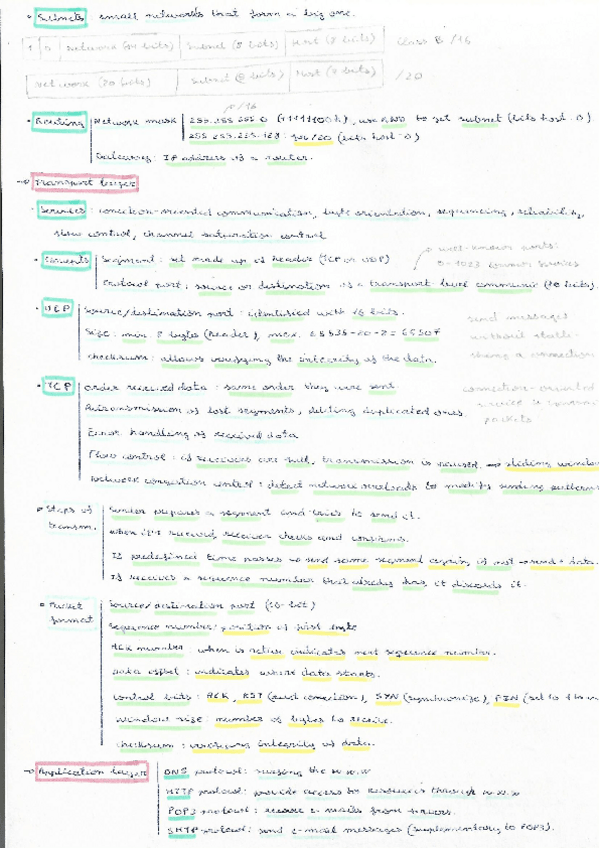 • Subnets small networks that form a big one.
1 0 Network (14 bits) Subnet (8 bits) Host (8 bits) Class B /16
Network (20 bits) Subnet (8 bits) Host (8 bits) /20
/16
• Routing Network mask 255.255.255.0
255.255.255.128 : (bits host: 0)
Gateway: IP address of a router.
→ Transport layer
• Services: conection-oriented communication, byte orientation, sequencing, reliability,
flow control, channel saturation control
well-known ports:
• Concepts Segment: set made up of header (TCP or UDP) 0-1023 known services
Protocol port: source or destination of a transport-level communic (16 bits).
• UDP Source/destination port: identified with 16 bits. send messages
Size: min 8 bytes (header), max. 65535-20-8 = 65507 without stabli-
checksum: allows verifying the integrity of the data. shing a connection
• TCP order received data: same order they were sent connection-oriented
Retransmission of lost segments, deleting duplicated ones. service
packets
Error handling of received data
Flow control: if receivers are full, transmission is → sliding window
Network congestion control: detect network overloads to modify sending pattern
• Steps of Sender prepares a segment and tries to send it.
transm. when it's received, receiver checks and confirms.
If predefined time passes → send same segment again, if not → send + data.
If receives a sequence number that already has, it discards it.
• Packet Source/destination port (16-bit)
format Sequence number: position of first byte
ACK number: when is active indicates next sequence number.
Data offset: indicates where data starts.
control bits: ACK, RST (reset conection), SYN (synchronize), FIN
window size: number of bytes to receive.
checksum: verifying integrity of data.
→ Application layer DNS protocol: the w.w.w
HTTP protocol: provide access to resources through w.w.w
POP3 protocol: receive e-mails from servers.
SMTP protocol: send e-mail messages (supplementary to POP3).